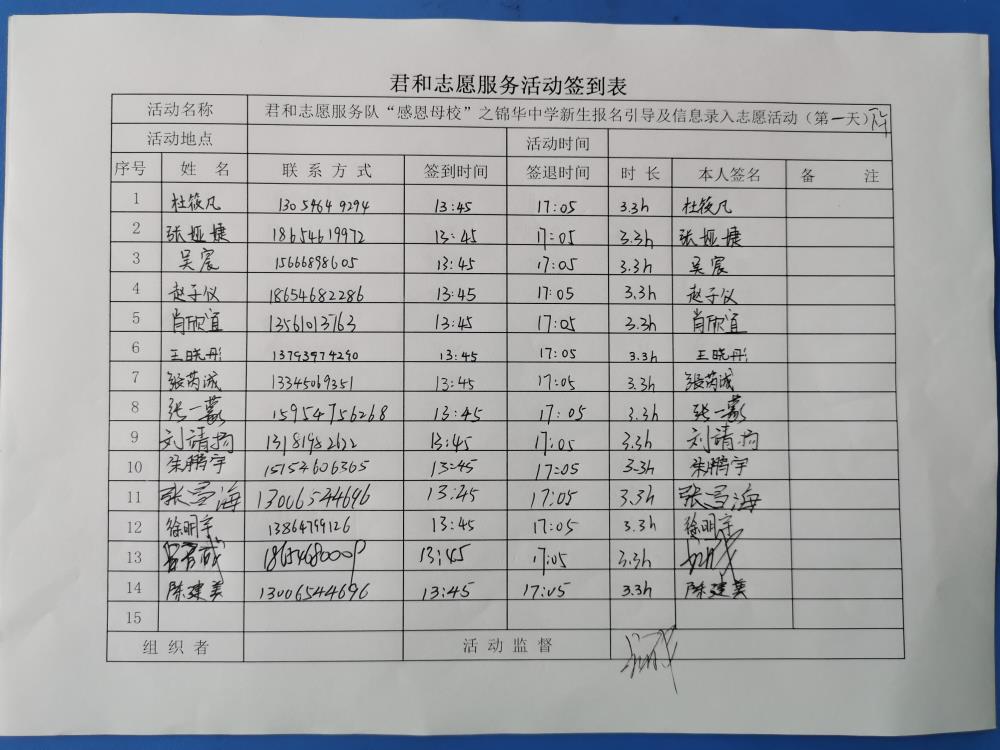 君和志愿服务活动签到表
活动名称 君和志愿服务队“感恩母校”之锦华中学新生报名引导及信息录入志愿活动（第一天）
活动地点 活动时间
序号 姓 名 联 系 方 式 签到时间 签退时间 时 长 本人签名 备 注
1 杜筱凡 13054649294 13:45 17:05 3.3h 杜筱凡
2 张娅婕 18654619972 13:45 17:05 3.3h 张娅婕
3 吴宸 15666898605 13:45 17:05 3.3h 吴宸
4 赵子仪 18654682286 13:45 17:05 3.3h 赵子仪
5 肖欣宜 13561013763 13:45 17:05 3.3h 肖欣宜
6 王晓彤 13793974290 13:45 17:05 3.3h 王晓彤
7 张芮诚 13345069351 13:45 17:05 3.3h 张芮诚
8 张一 15954756268 13:45 17:05 3.3h 张一
9 刘靖 13181982622 13:45 17:05 3.3h 刘靖
10 梁鹏宇 15154606365 13:45 17:05 3.3h 梁鹏宇
11 张雪海 13006544696 13:45 17:05 3.3h 张雪海
12 徐明宇 13864799126 13:45 17:05 3.3h 徐明宇
13 13:45 17:05 3.3h
14 陈建美 13006544696 13:45 17:05 3.3h 陈建美
15
组 织 者 活 动 监 督